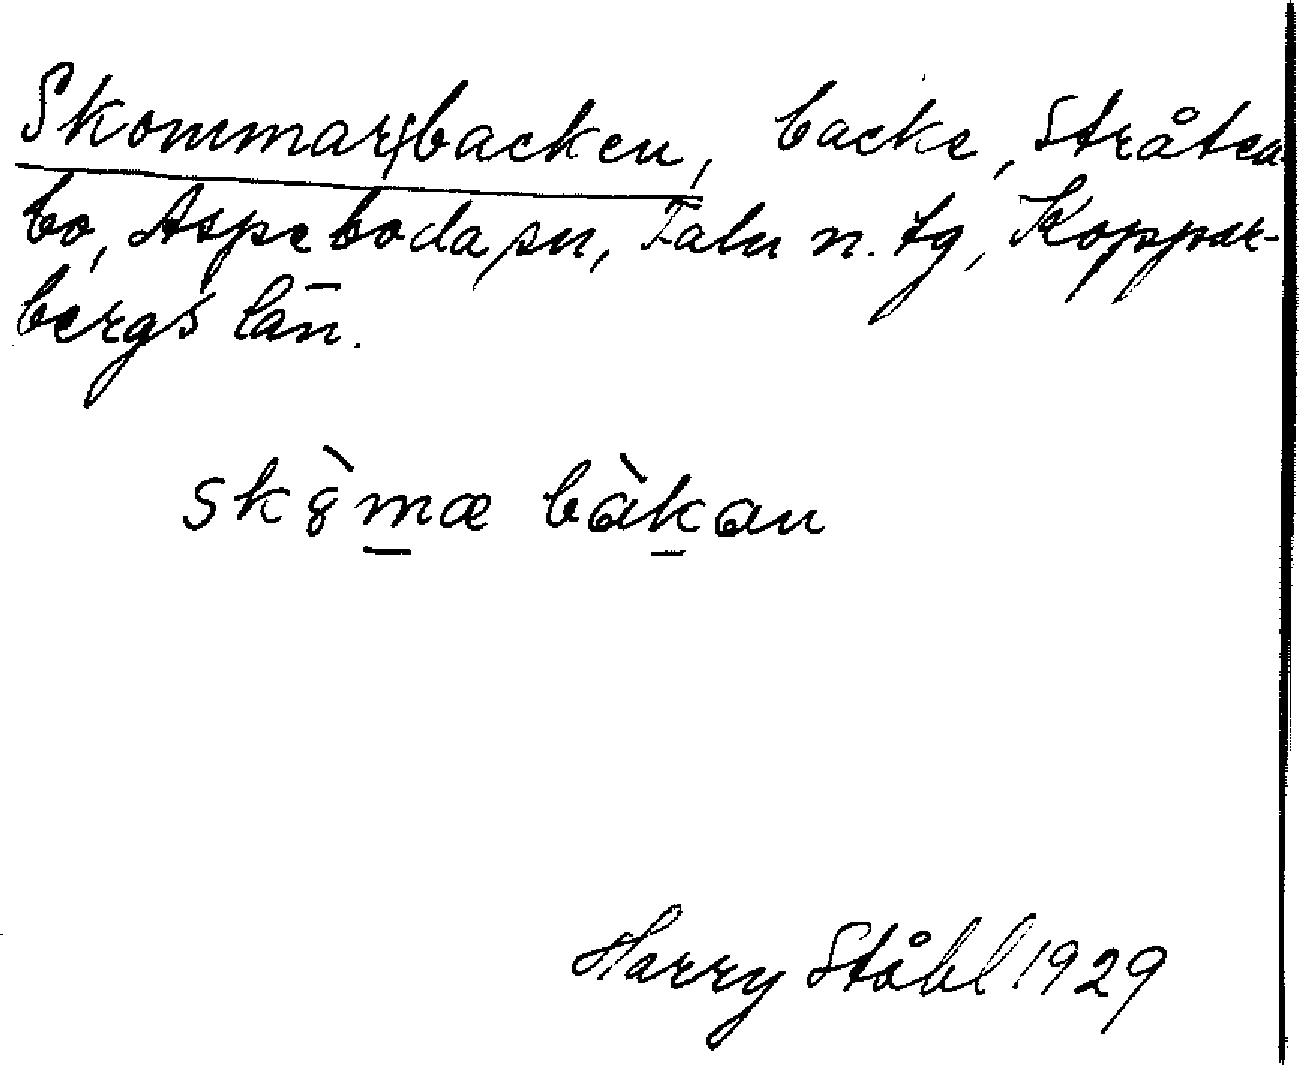 Skommar/backen, backe, Stråten
bo, Aspeboda sn, Falu n. tg, Koppar-
bergs län.
sk8̀mæ bàkan
Harry Ståhl 1929